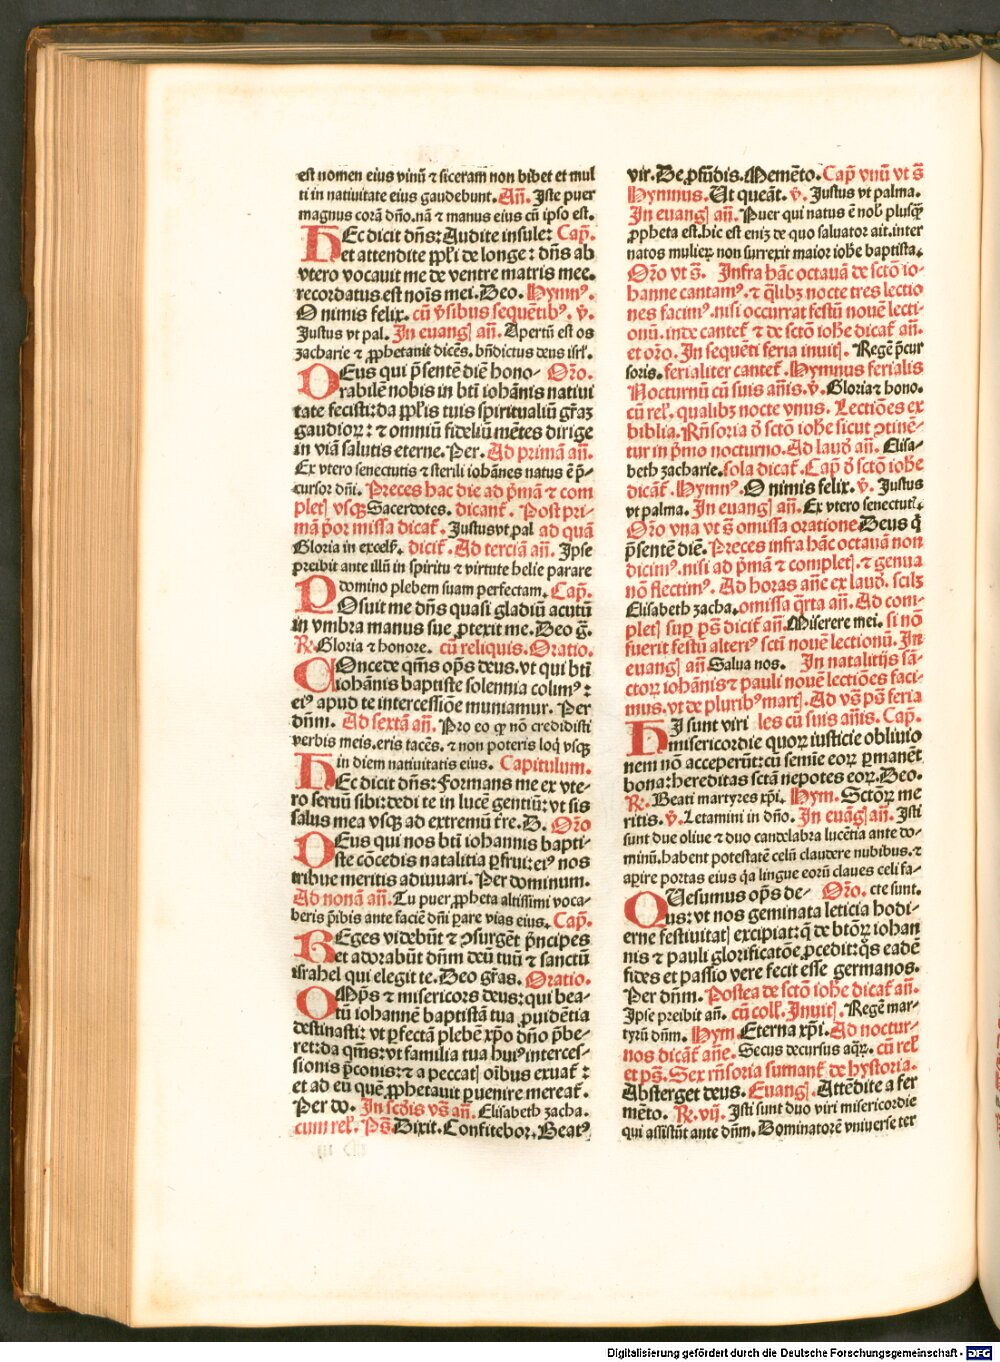 est nomen eius vinū ⁊ siceram non bibet et mul
ti in nativitate eius gaudebunt. Añ. Iste puer
magnus corā dño. nā ⁊ manus eius cū ipso est.
HEc dicit dñs: Audite insule: Cap̄.
et attendite ppl̄i de longe: dñs ab
vtero vocauit me de ventre matris mee.
recordatus est nois mei. Deo. Hymnꝰ.
O nimis felix. cū v̄sibus sequētibꝰ. v̄.
Justus vt pal. In euangl̄ añ. Apertū est os
zacharie ⁊ ꝓphetauit dicēs. bn̄dictus deus isrl̄.
DEus qui p̄sentē diē hono- Oro.
rabilē nobis in bt̄i iohānis natiui
tate fecisti: da ppl̄is tuis spiritualiū gr̄aꝝ
gaudioꝝ: ⁊ omniū fideliū mētes dirige
in viā salutis eterne. Per. Ad primā añ.
Ex vtero senectutis ⁊ sterili iohānes natus ē p̄-
cursor dñi. Preces hac die ad p̄mā ⁊ com
plet̄ vsqꝫ Sacerdotes. dicant̄. Post pri-
mā p̄or missa dicat̄. Justus vt pal ad quā
Gloria in excels̄. dicit̄. Ad terciā añ. Ipse
preibit ante illū in spiritu ⁊ virtute helie parare
domino plebem suam perfectam. Cap̄.
POsuit me dñs quasi gladiū acutū
in vmbra manus sue ꝓtexit me. Deo ḡ.
R̄. Gloria ⁊ honore. cū reliquis. Oratio.
COncede qm̄s op̄s deus. vt qui bt̄i
iohānis baptiste solennia colimꝰ:
eiꝰ apud te intercessiōe muniamur. Per
dñm. Ad sextā añ. Pro eo qꝫ nō credidisti
verbis meis. eris tacēs. ⁊ non poteris loqi vsqꝫ
in diem natiuitatis eius. Capitulum.
HEc dicit dñs: Formans me ex vte-
ro seruū sibi: dedi te in lucē gentiū: vt sis
salus mea vsqꝫ ad extremū t̄re. D. Oro
DEus qui nos bt̄i iohannis bapti-
ste cōcedis natalitia ꝑfrui: eiꝰ nos
tribue meritis adiuuari. Per dominum.
Ad nonā añ. Tu puer ꝓpheta altissimi voca-
beris p̄ibis ante faciē dñi pare vias eius. Cap̄.
REges videbūt ⁊ ꝯsurgēt p̄ncipes
et adorabūt dñm deū tuū ⁊ sanctū
israhel qui elegit te. Deo gr̄as. Oratio.
OMp̄s ⁊ misericors deus: qui bea-
tū iohannē baptistā tua ꝓuidētia
destinasti: vt ꝑfectā plebē xp̄o dño p̄be-
ret: da qm̄s: vt familia tua huiꝰ interces-
sionis p̄conis: ⁊ a peccat̄ oībus exuat̄:
et ad eū quē ꝓphetauit ꝑuenire mereat̄.
Per do. In scd̄is vs̄ añ. Elisabeth zacha.
cum rel̄. Ps̄. Dixit. Confitebor. Beatꝰ
vir. De ꝓfūdis. Memēto. Cap̄ vnū vt s̄
Hymnus. Ut queāt. v̄. Justus vt palma.
In euangl̄ añ. Puer qui natus ē nob̄ plusqꝫ
ꝓpheta est. hic est eniꝫ de quo saluator ait. inter
natos mulieꝝ non surrexit maior iohe baptista.
Oro vt s̄. Infra hāc octauā de scto io-
hanne cantamꝰ. ⁊ ql̄ibꝫ nocte tres lectio
nes facimꝰ. nisi occurrat festū nouē lecti-
onū. inde cantet̄ ⁊ de scto iohe dicat̄ añ.
et oro. In sequēti feria inuit̄. Regē p̄cur
soris. ferialiter cantet̄. Hymnus ferialis
Nocturnū cū suis añis. v̄. Gloria ⁊ hono.
cū rel̄. qualibꝫ nocte vnus. Lectiōes ex
biblia. Rn̄soria d̄ scto iohe sicut ꝯtinē-
tur in p̄mo nocturno. Ad laud̄ añ. Elisa-
beth zacharie. sola dicat̄. Cap̄ d̄ scto iohe
dicāt̄. Hymnꝰ. O nimis felix. v̄. Justus
vt palma. In euangl̄ añ. Ex vtero senectut̄.
Oro vna vt s̄ omissa oratione Deus q̄
p̄sentē diē. Preces infra hāc octauā non
dicimꝰ. nisi ad p̄mā ⁊ complet̄. ⁊ genua
nō flectimꝰ. Ad horas añe ex laud̄. scilꝫ
Elisabeth zacha. omissa q̄rta añ. Ad com-
plet̄ sup̄ ps̄ dicit̄ añ. Miserere mei. si nō
fuerit festū alteriꝰ scti nouē lectionū. In
euangl̄ añ Salua nos. In natalitijs sā-
ctoꝝ iohānis ⁊ pauli nouē lectiōes faci-
mus. vt de pluribꝰ mart̄. Ad vs̄ ps̄ feria
HI sunt viri les cū suis añis. Cap̄.
misericordie quoꝝ iusticie obliuio
nem nō acceperūt: cū semīe eoꝝ ꝑmanēt
bona: hereditas sctā nepotes eoꝝ. Deo.
R̄. Beati martyres xp̄i. Hym. Sctoꝝ me
ritis. v̄. Letamini in dño. In euāgl̄ añ. Isti
sunt due oliue ⁊ duo candelabra lucētia ante do-
minū. habent potestatē celū claudere nubibus. ⁊
aꝑire portas eius q̄a lingue eorū claues celi fa-
QUesumus op̄s de- Oro. cte sunt.
us: vt nos geminata leticia hodi-
erne festiuitat̄ excipiat: q̄ de bt̄oꝝ iohan
nis ⁊ pauli glorificatōe ꝓcedit: qꝫs eadē
fides et passio vere fecit esse germanos.
Per dñm. Postea de scto iohe dicat̄ añ.
Ipse preibit añ. cū coll̄. Inuit̄. Regē mar-
tyrū dñm. Hym. Eterna xp̄i. Ad noctur-
nos dicāt̄ añe. Secus decursus aqꝝ. cū rel̄
et ps̄. Sex rn̄soria sumant̄ de hystoria.
Absterget deus. Euangl̄. Attēdite a fer
mēto. R̄. vij. Isti sunt duo viri misericordie
qui assistūt ante dñm. Dominatorē vniuerse ter
Digitalisierung gefördert durch die Deutsche Forschungsgemeinschaft - DFG